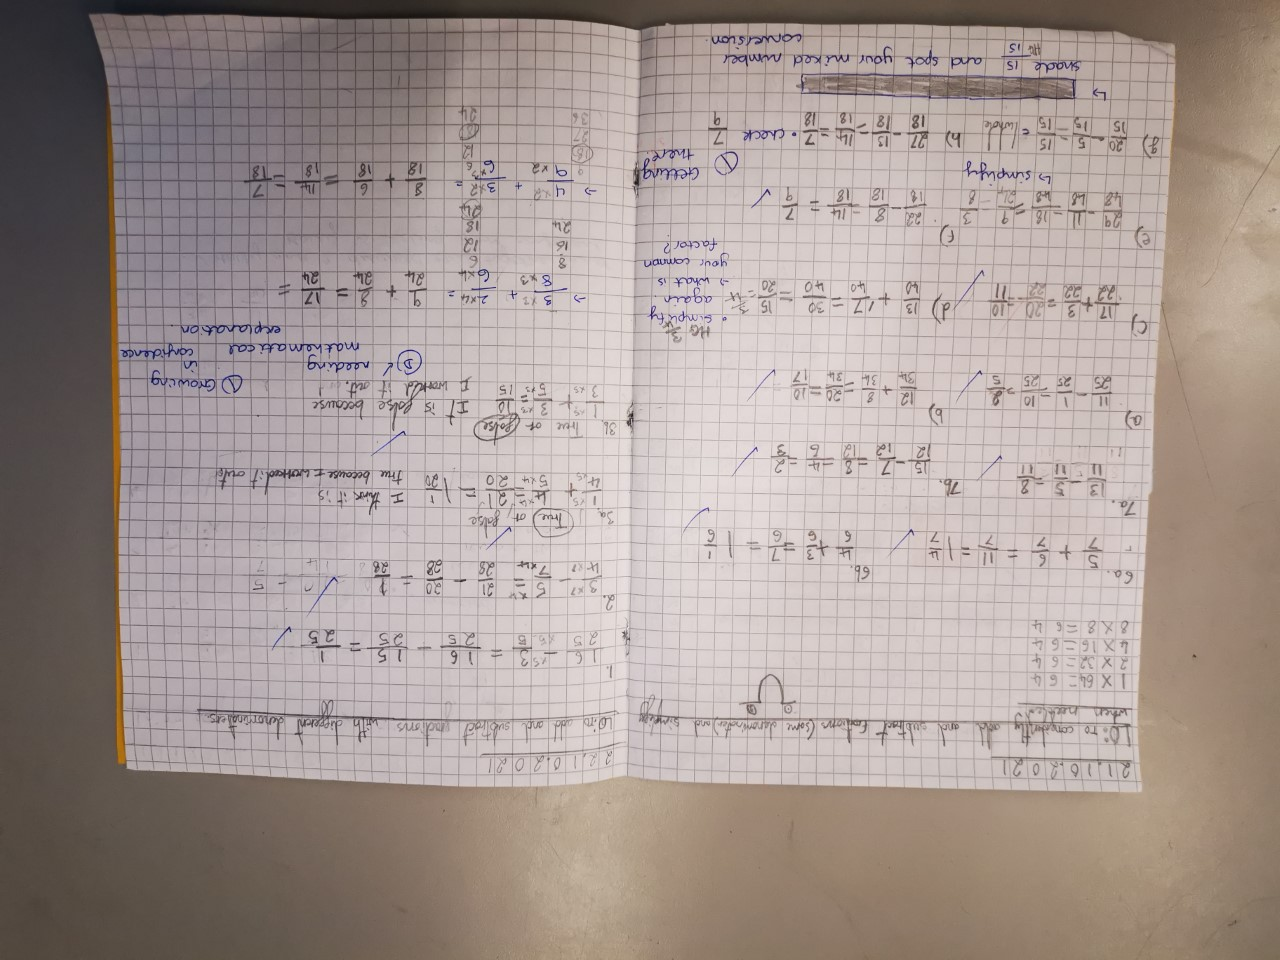 21.10.2021
LO: To confidently add and subtract fractions (same denominator) and simplify
when needed
1 x 64 = 64
2 x 32 = 64
4 x 16 = 64
8 x 8 = 64
6a. 5/7 + 6/7 = 11/7 = 1 4/7
6b. 4/6 + 3/6 = 7/6 = 1 1/6
7a. 13/11 - 5/11 = 8/11
7b. 15/12 - 7/12 = 8/12 = 4/6 = 2/3
a) 11/25 - 1/25 = 10/25 = 2/5
b) 12/34 + 8/34 = 20/34 = 10/17
c) 17/22 + 3/22 = 20/22 = 10/11
d) 13/40 + 17/40 = 30/40 = 15/20 = 3/4
HG 3/4
• simplify
again
→ what is
your common
factor?
e) 29/48 - 11/48 = 18/48 = 9/24 = 3/8
f) 22/18 - 8/18 = 14/18 = 7/9
↳ simplify
g) 20/15 - 5/15 = 15/15 = 1 whole
h) 27/18 - 13/18 = 14/18 = 7/18 • check 7/9
Getting
there.
↳
shade 15/15 and spot your mixed number
conversion.
22.10.2021
LO: to add and subtract fractions with different denominators
1. 16/25 - 3x5/5x5 = 16/25 - 15/25 = 1/25
2. 3x7/4x7 - 5x4/7x4 = 21/28 - 20/28 = 1/28
3a. True or false
1x5/4x5 + 4x4/5x4 = 21/20 = 1 1/20 I think it is
true because I worked it out
3b. True or false
1x5/3x5 + 3x3/5x3 = 10/15 It is false because
I worked it out.
Growing
in
confidence
needing
mathematical
explanation.
→ 3x3/8x3 + 2x4/6x4 = 9/24 + 8/24 = 17/24 =
8 6
16 12
24 18
24
→ 4x2/9x2 + 3x2/6x3 = 8/18 + 6/18 = 14/18 = 7/18
9 6
18 12
27 18
36 24